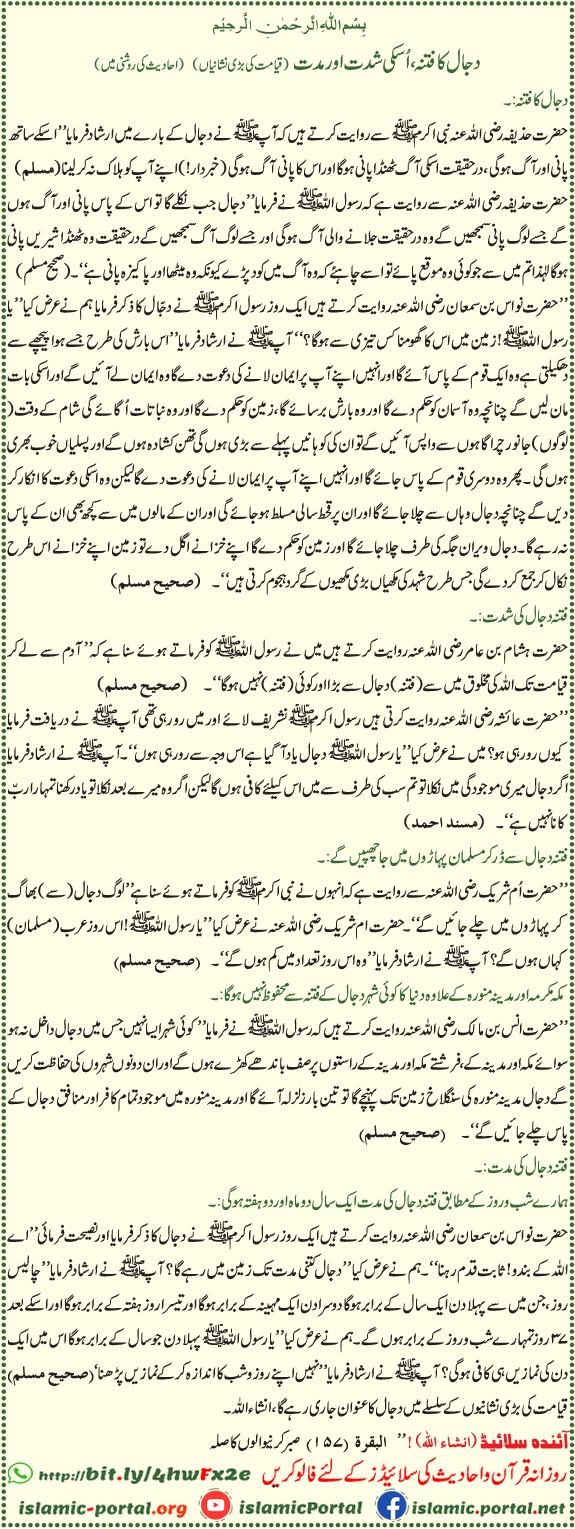 بِسْمِ اللهِ الرَّحْمٰنِ الرَّحِيْمِ
دجال کا فتنہ، اُسکی شدت اور مدت (قیامت کی بڑی نشانیاں) (احادیث کی روشنی میں)
دجال کا فتنہ:۔
حضرت حذیفہ رضی اللہ عنہ نبی اکرمﷺ سے روایت کرتے ہیں کہ آپﷺ نے دجال کے بارے میں ارشاد فرمایا ’’اسکے ساتھ
پانی اور آگ ہوگی، درحقیقت اسکی آگ ٹھنڈا پانی ہوگا اور اس کا پانی آگ ہوگی (خبردار!) اپنے آپ کو ہلاک نہ کرلینا (مسلم)
حضرت حذیفہ رضی اللہ عنہ سے روایت ہے کہ رسول اللہﷺ نے فرمایا ’’دجال جب نکلے گا تو اس کے پاس پانی اور آگ ہوں
گے جسے لوگ پانی سمجھیں گے وہ درحقیقت جلانے والی آگ ہوگی اور جسے لوگ آگ سمجھیں گے درحقیقت وہ ٹھنڈا شیریں پانی
ہوگا لہٰذا تم میں سے جو کوئی وہ موقع پائے تو اسے چاہئے کہ وہ آگ میں کود پڑے کیونکہ وہ میٹھا اور پاکیزہ پانی ہے‘‘۔ (صحیح مسلم)
’’حضرت نواس بن سمعان رضی اللہ عنہ روایت کرتے ہیں ایک روز رسول اکرمﷺ نے دجّال کا ذکر فرمایا ہم نے عرض کیا ’’یا
رسول اللہﷺ! زمین میں اس کا گھومنا کس تیزی سے ہوگا؟‘‘ آپﷺ نے ارشاد فرمایا ’’اس بارش کی طرح جسے ہوا پیچھے سے
دھکیلتی ہے وہ ایک قوم کے پاس آئے گا اور انہیں اپنے آپ پر ایمان لانے کی دعوت دے گا وہ ایمان لے آئیں گے اور اسکی بات
مان لیں گے چنانچہ وہ آسمان کو حکم دے گا اور وہ بارش برسائے گا، زمین کو حکم دے گا اور وہ نباتات اُگائے گی شام کے وقت (
لوگوں) جانور چراگاہوں سے واپس آئیں گے تو ان کی کوہانیں پہلے سے بڑی ہوں گی تھن کشادہ ہوں گے اور پسلیاں خوب بھری
ہوں گی۔ پھر وہ دوسری قوم کے پاس جائے گا اور انہیں اپنے آپ پر ایمان لانے کی دعوت دے گا لیکن وہ اسکی دعوت کا انکار کر
دیں گے چنانچہ دجال وہاں سے چلا جائے گا اور ان پر قحط سالی مسلط ہو جائے گی اور ان کے مالوں میں سے کچھ بھی ان کے پاس
نہ رہے گا۔ دجال ویران جگہ کی طرف چلا جائے گا اور زمین کو حکم دے گا اپنے خزانے اگل دے تو زمین اپنے خزانے اس طرح
نکال کر جمع کر دے گی جس طرح شہد کی مکھیاں بڑی مکھیوں کے گرد ہجوم کرتی ہیں‘‘۔ (صحیح مسلم)
فتنہ دجال کی شدت:۔
حضرت ہشام بن عامر رضی اللہ عنہ روایت کرتے ہیں میں نے رسول اللہﷺ کو فرماتے ہوئے سنا ہے کہ ’’آدم سے لے کر
قیامت تک اللہ کی مخلوق میں سے (فتنہ) دجال سے بڑا اور کوئی (فتنہ) نہیں ہوگا‘‘۔ (صحیح مسلم)
’’حضرت عائشہ رضی اللہ عنہ روایت کرتی ہیں رسول اکرمﷺ تشریف لائے اور میں رو رہی تھی آپﷺ نے دریافت فرمایا
کیوں رو رہی ہو؟ میں نے عرض کیا ’’یا رسول اللہﷺ دجال یاد آ گیا ہے اس وجہ سے رو رہی ہوں‘‘۔ آپﷺ نے ارشاد فرمایا
اگر دجال میری موجودگی میں نکلا تو تم سب کی طرف سے میں اس کیلئے کافی ہوں گا لیکن اگر وہ میرے بعد نکلا تو یاد رکھنا تمہارا ربّ
کانا نہیں ہے‘‘۔ (مسند احمد)
فتنہ دجال سے ڈر کر مسلمان پہاڑوں میں جا چھپیں گے:۔
’’حضرت اُم شریک رضی اللہ عنہ سے روایت ہے کہ انہوں نے نبی اکرمﷺ کو فرماتے ہوئے سنا ہے ’’لوگ دجال (سے) بھاگ
کر پہاڑوں میں چلے جائیں گے‘‘۔ حضرت ام شریک رضی اللہ عنہ نے عرض کیا ’’یا رسول اللہﷺ! اس روز عرب (مسلمان)
کہاں ہوں گے؟ آپﷺ نے ارشاد فرمایا ’’وہ اس روز تعداد میں کم ہوں گے‘‘۔ (صحیح مسلم)
مکہ مکرمہ اور مدینہ منورہ کے علاوہ دنیا کا کوئی شہر دجال کے فتنہ سے محفوظ نہیں ہوگا:۔
’’حضرت انس بن مالک رضی اللہ عنہ روایت کرتے ہیں کہ رسول اللہﷺ نے فرمایا ’’کوئی شہر ایسا نہیں جس میں دجال داخل نہ ہو
سوائے مکہ اور مدینہ کے، فرشتے مکہ اور مدینہ کے راستوں پر صف باندھے کھڑے ہوں گے اور ان دونوں شہروں کی حفاظت کریں
گے دجال مدینہ منورہ کی سنگلاخ زمین تک پہنچے گا تو تین بار زلزلہ آئے گا اور مدینہ منورہ میں موجود تمام کافر اور منافق دجال کے
پاس چلے جائیں گے‘‘۔ (صحیح مسلم)
فتنہ دجال کی مدت:۔
ہمارے شب و روز کے مطابق فتنہ دجال کی مدت ایک سال دو ماہ اور دو ہفتہ ہوگی:۔
حضرت نواس بن سمعان رضی اللہ عنہ روایت کرتے ہیں ایک روز رسول اکرمﷺ نے دجال کا ذکر فرمایا اور نصیحت فرمائی ’’اے
اللہ کے بندو! ثابت قدم رہنا‘‘۔ ہم نے عرض کیا ’’دجال کتنی مدت تک زمین میں رہے گا؟ آپﷺ نے ارشاد فرمایا ’’چالیس
روز، جن میں سے پہلا دن ایک سال کے برابر ہوگا دوسرا دن ایک مہینہ کے برابر ہوگا اور تیسرا روز ہفتہ کے برابر ہوگا اور اسکے بعد
۳۷ روز تمہارے شب و روز کے برابر ہوں گے۔ ہم نے عرض کیا ’’یا رسول اللہﷺ پہلا دن جو سال کے برابر ہوگا اس میں ایک
دن کی نمازیں ہی کافی ہوگی؟ آپﷺ نے ارشاد فرمایا ’’نہیں اپنے روز و شب کا اندازہ کرکے نمازیں پڑھنا‘ (صحیح مسلم)
قیامت کی بڑی نشانیوں کے سلسلے میں دجال کا عنوان جاری رہے گا، انشاء اللہ۔
آئندہ سلائیڈ (انشاء اللہ)! ’’ البقرۃ (۱۵۷) صبر کرنیوالوں کا صلہ
روزانہ قرآن و احادیث کی سلائیڈز کے لئے فالو کریں http://bit.ly/4hwFx2e
islamic-portal.org islamicPortal islamic.portal.net